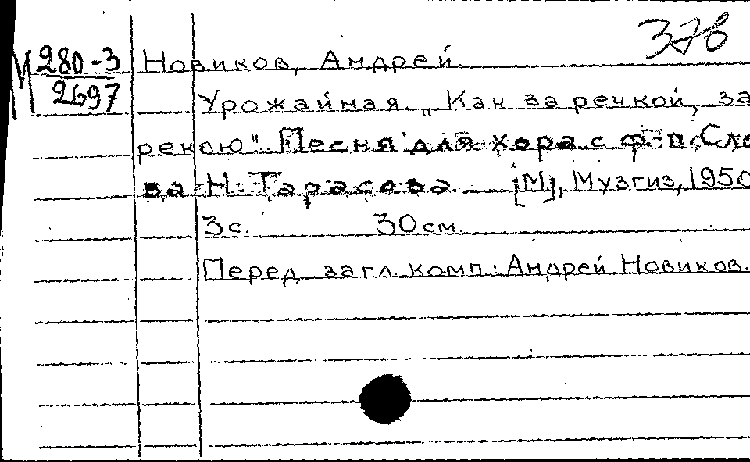 378
М 280-3
2697
Новиков, Андрей
Урожайная. „Как за речкой, за
рекою". Песня для хора с ф.-п. Сло
ва Н. Тарасова. [М], Музгиз, 1950
3 с. 30 см.
Перед загл. комп.: Андрей Новиков.